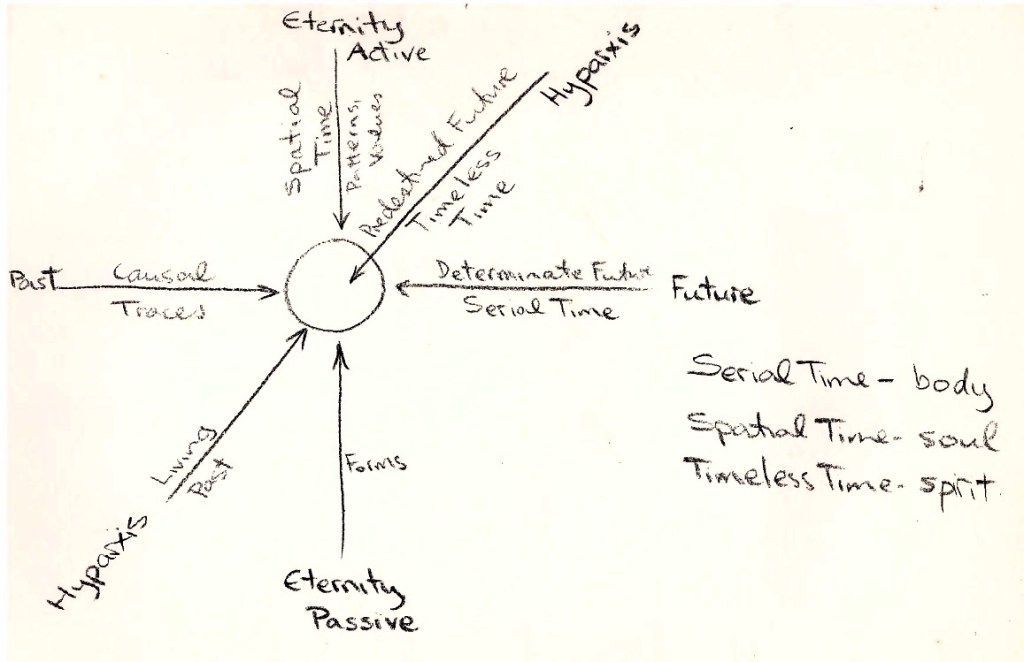 Eternity
Active
Hyparxis
Spatial
Time
Patterns,
Values
Predestined Future
Timeless
Time
Past
Causal
Traces
Determinate Future
Serial Time
Future
Serial Time - body
Spatial Time - soul
Timeless Time - spirit
Living
Past
Forms
Hyparxis
Eternity
Passive